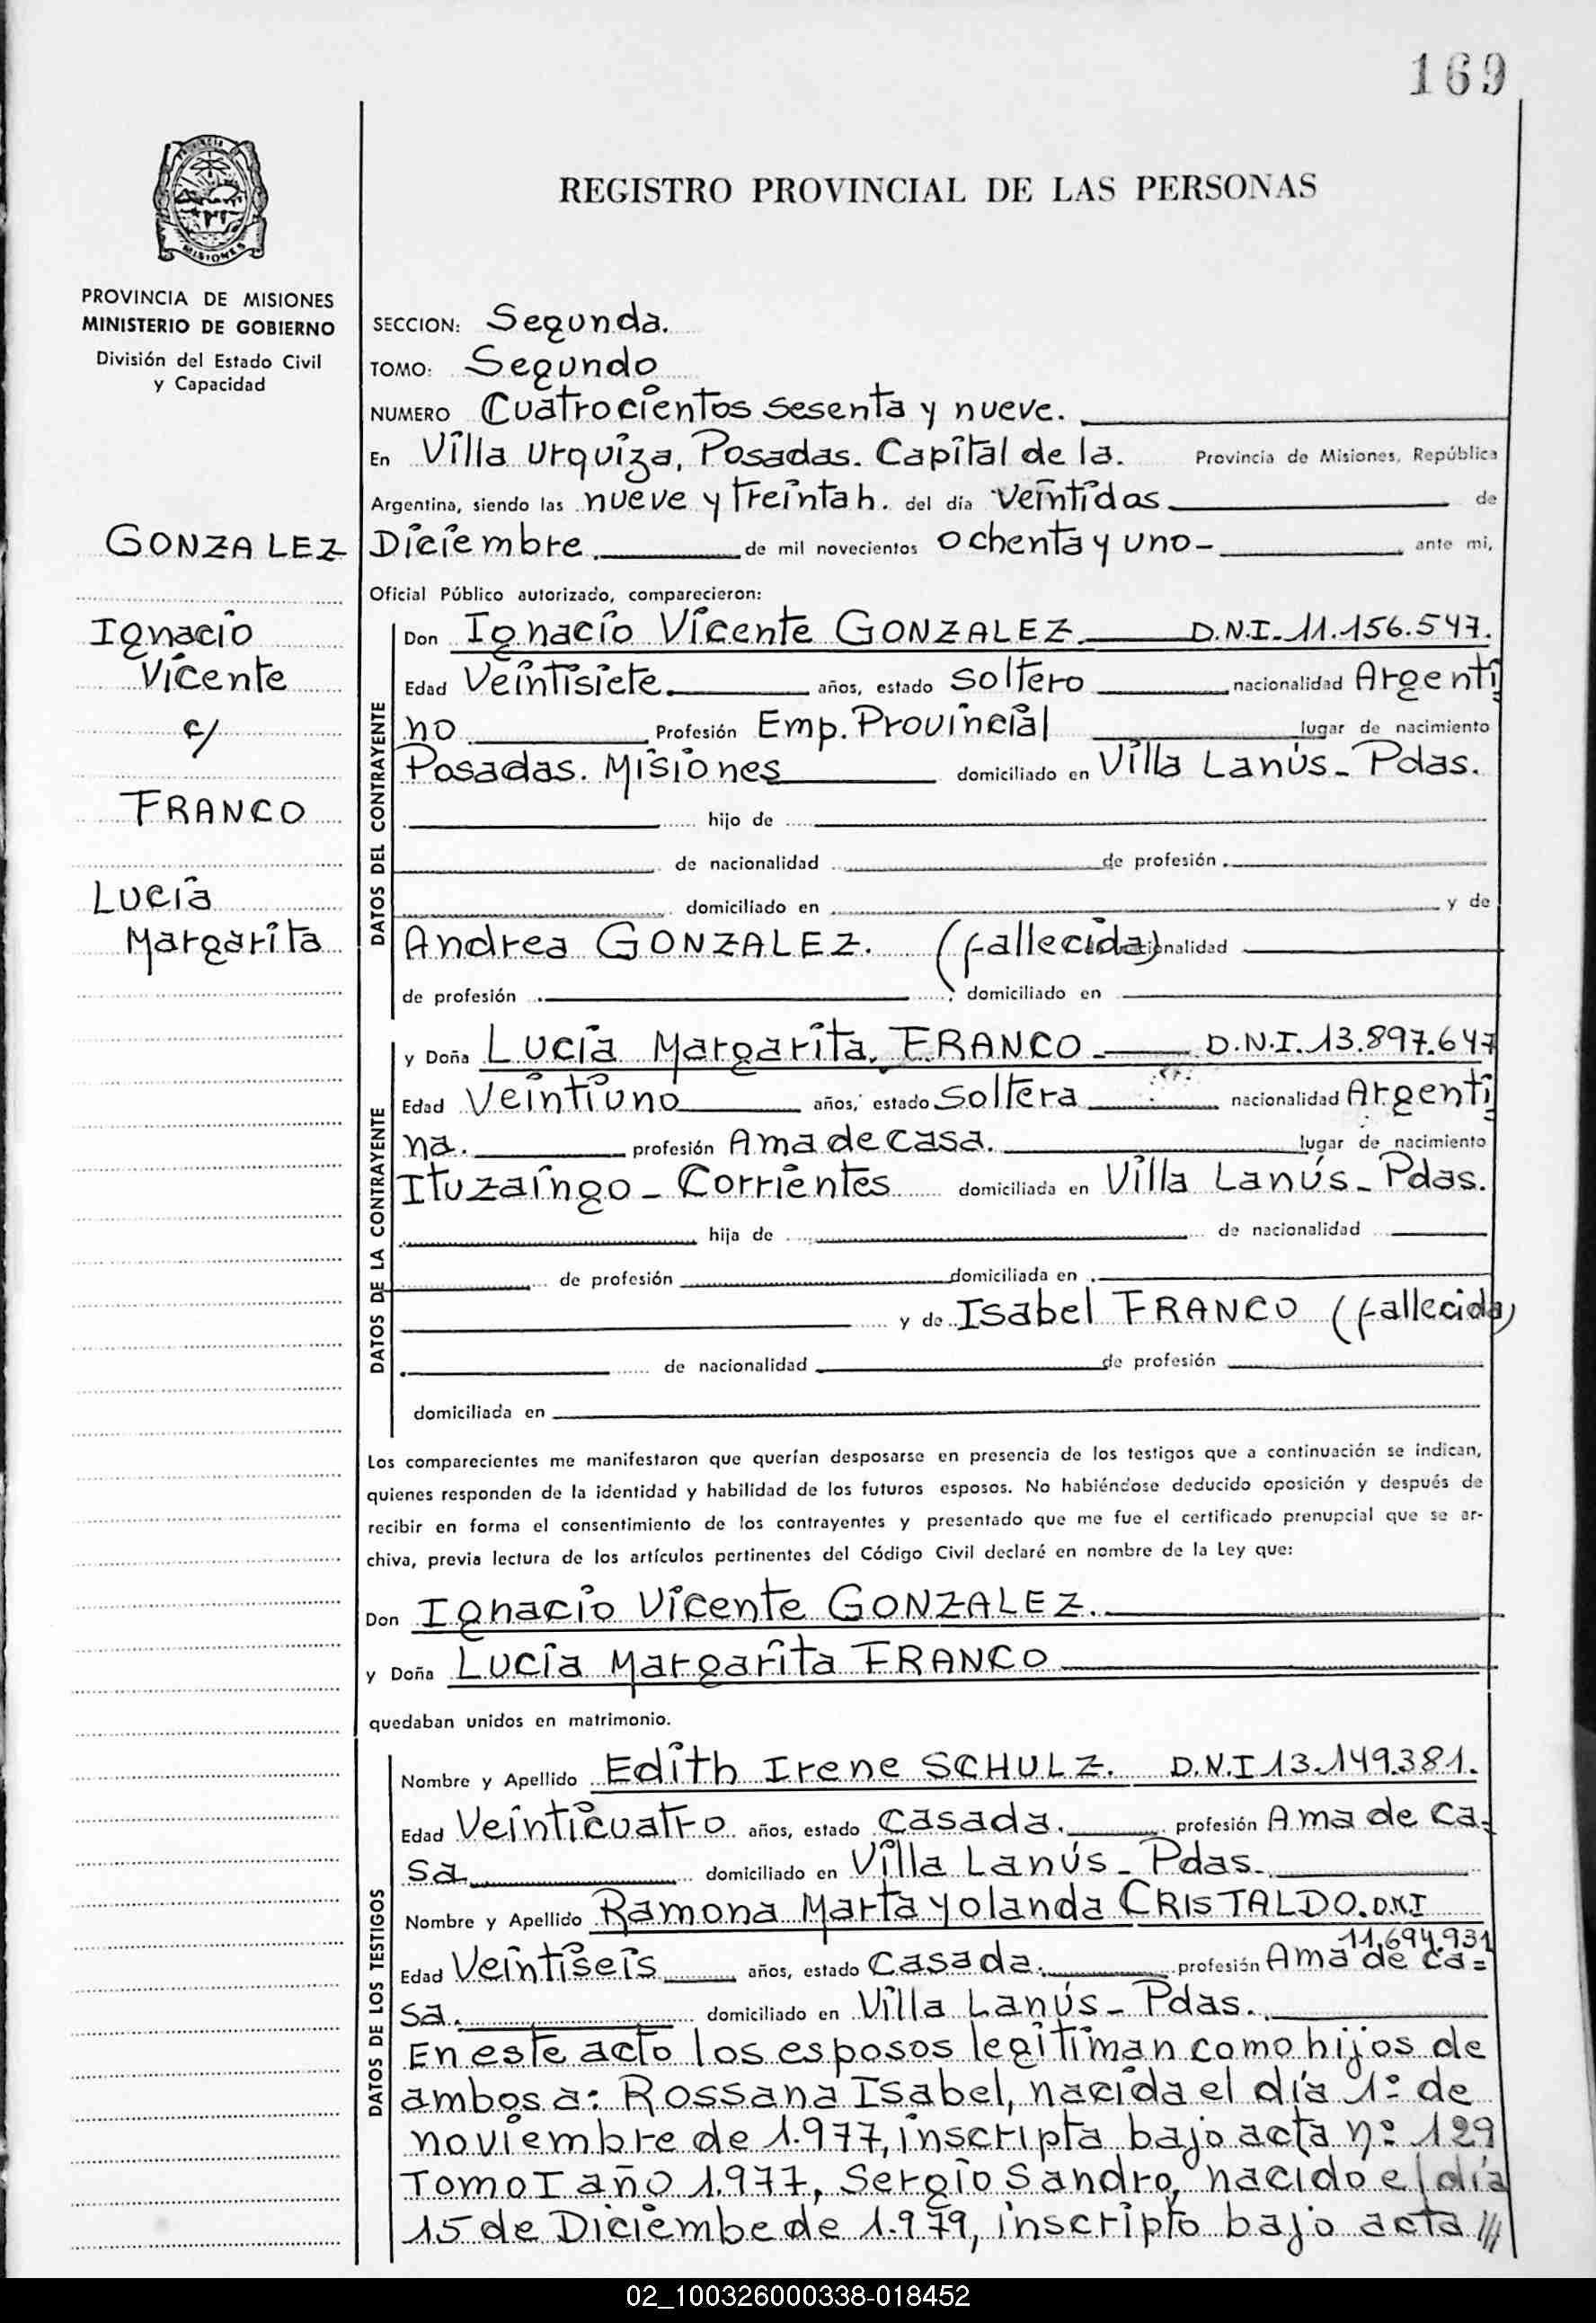 169
PROVINCIA MISIONES
REGISTRO PROVINCIAL DE LAS PERSONAS
PROVINCIA DE MISIONES
MINISTERIO DE GOBIERNO
División del Estado Civil
y Capacidad
GONZALEZ
Ignacio
Vicente
c/
FRANCO
Lucía
Margarita
SECCION: Segunda.
TOMO: Segundo
NUMERO Cuatrocientos sesenta y nueve.
En Villa Urquiza, Posadas. Capital de la. Provincia de Misiones, República
Argentina, siendo las nueve y treinta h. del día Veintidos de
Diciembre. de mil novecientos ochenta y uno- ante mi,
Oficial Público autorizado, comparecieron:
DATOS DEL CONTRAYENTE
Don Ignacio Vicente GONZALEZ. D.N.I. 11.156.547.
Edad Veintisiete. años, estado soltero nacionalidad Argenti
no Profesión Emp. Provincial lugar de nacimiento
Posadas. Misiones domiciliado en Villa Lanús- Pdas.
hijo de
de nacionalidad de profesión
domiciliado en y de
Andrea GONZALEZ. (fallecida) nacionalidad
de profesión domiciliado en
DATOS DE LA CONTRAYENTE
y Doña Lucía Margarita, FRANCO- D.N.I. 13.897.647
Edad Veintiuno años, estado soltera nacionalidad Argenti
na. profesión Ama de casa. lugar de nacimiento
Ituzaingo- Corrientes domiciliada en Villa Lanús- Pdas.
hija de de nacionalidad
de profesión domiciliada en
y de Isabel FRANCO (fallecida)
de nacionalidad de profesión
domiciliada en
Los comparecientes me manifestaron que querían desposarse en presencia de los testigos que a continuación se indican,
quienes responden de la identidad y habilidad de los futuros esposos. No habiéndose deducido oposición y después de
recibir en forma el consentimiento de los contrayentes y presentado que me fue el certificado prenupcial que se ar-
chiva, previa lectura de los artículos pertinentes del Código Civil declaré en nombre de la Ley que:
Don Ignacio Vicente GONZALEZ.
y Doña Lucía Margarita FRANCO
quedaban unidos en matrimonio.
DATOS DE LOS TESTIGOS
Nombre y Apellido Edith Irene SCHULZ. D.N.I 13.149.381.
Edad Veinticuatro años, estado casada. profesión Ama de ca-
sa. domiciliado en Villa Lanús- Pdas.
Nombre y Apellido Ramona Marta Yolanda CRISTALDO. DNI
11.694.931
Edad Veintiseis años, estado casada. profesión Ama de ca=
sa. domiciliado en Villa Lanús- Pdas.
En este acto los esposos legitiman como hijos de
ambos a: Rossana Isabel, nacida el día 1º de
noviembre de 1.977, inscripta bajo acta nº 129
Tomo I año 1.977, Sergio Sandro, nacido el día
15 de Diciembe de 1.979, inscripto bajo acta ///
02_100326000338-018452